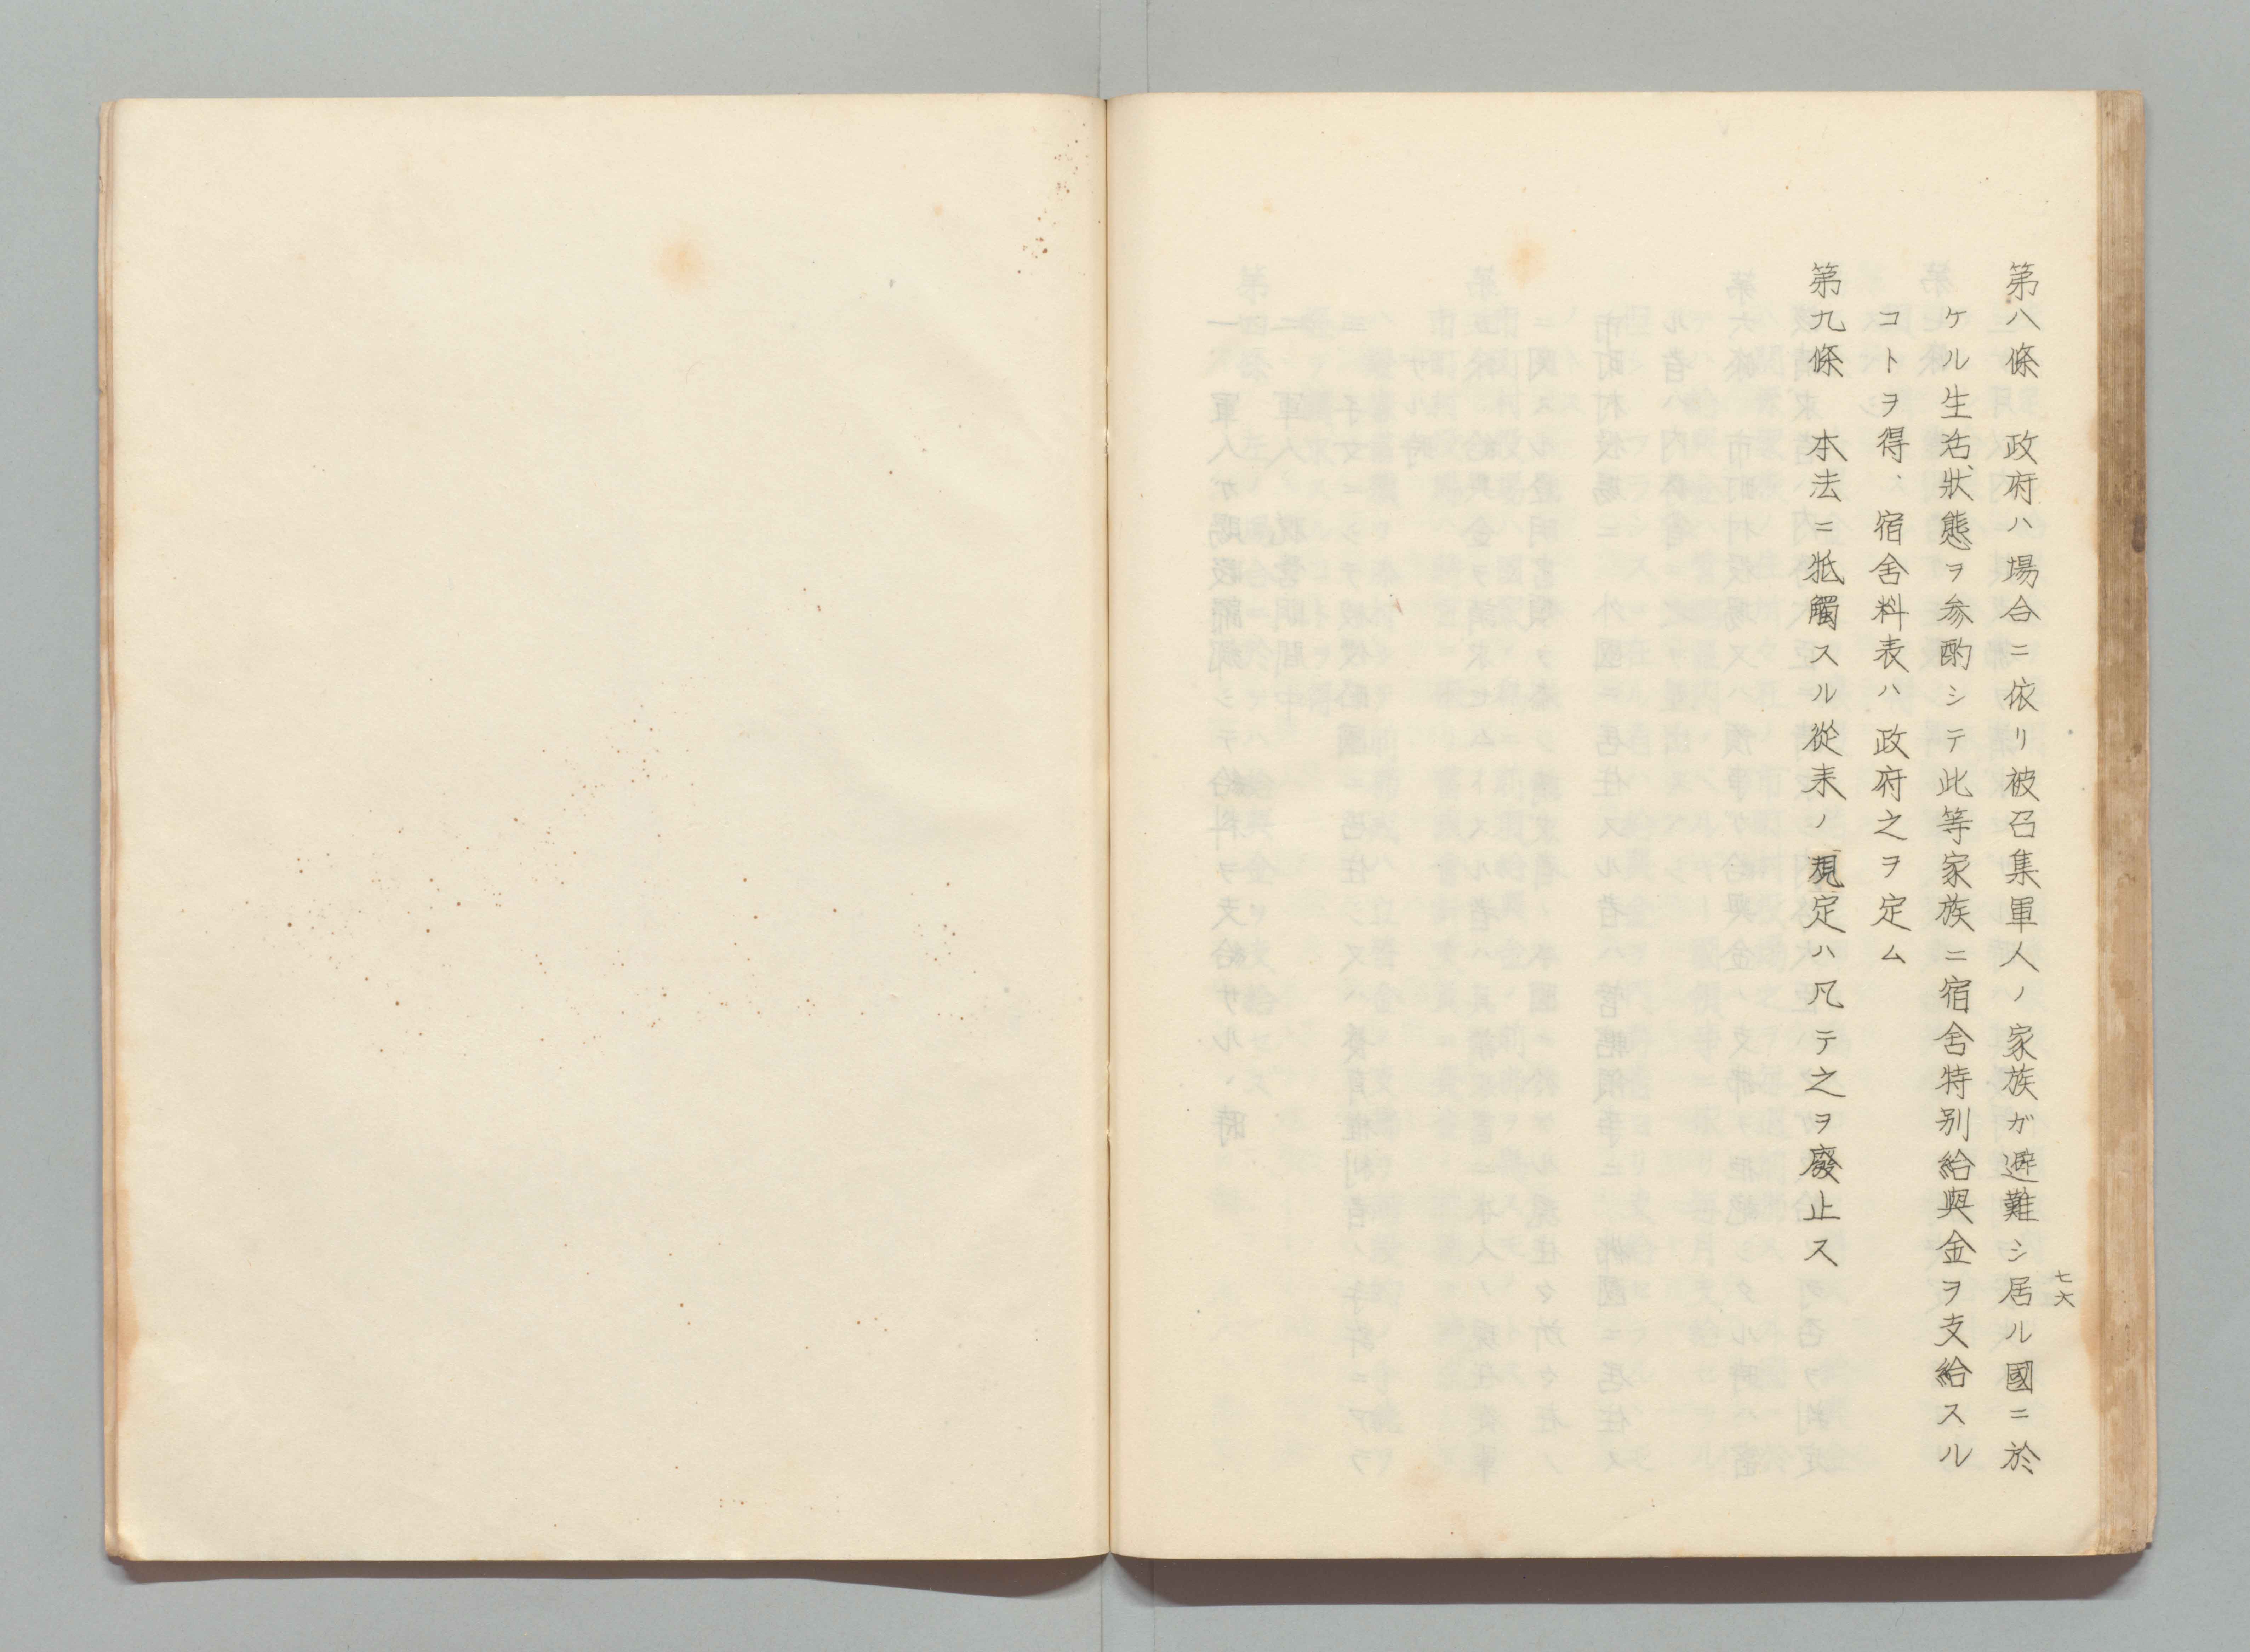 第八條　政府ハ場合ニ依リ被召集軍人ノ家族ガ避難シ居ル國ニ於
ケル生活狀態ヲ参酌シテ此等家族ニ宿舍特別給與金ヲ支給スル
コトヲ得、宿舍料表ハ政府之ヲ定ム
第九條　本法ニ牴觸スル從来ノ規定ハ凡テ之ヲ廢止ス
七六